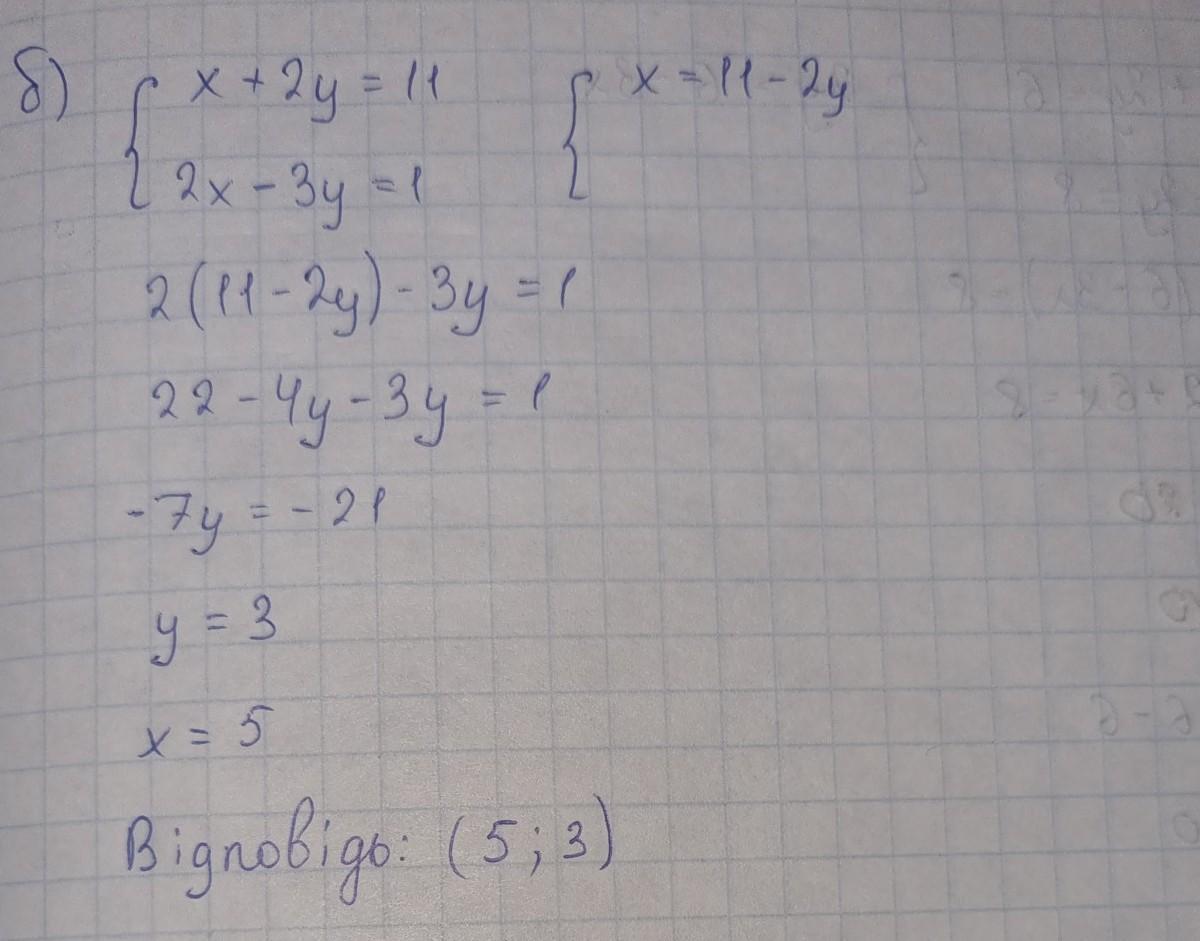 б) { x + 2y = 11 { x = 11 - 2y
2x - 3y = 1
2(11 - 2y) - 3y = 1
22 - 4y - 3y = 1
-7y = -21
y = 3
x = 5
Відповідь: (5; 3)